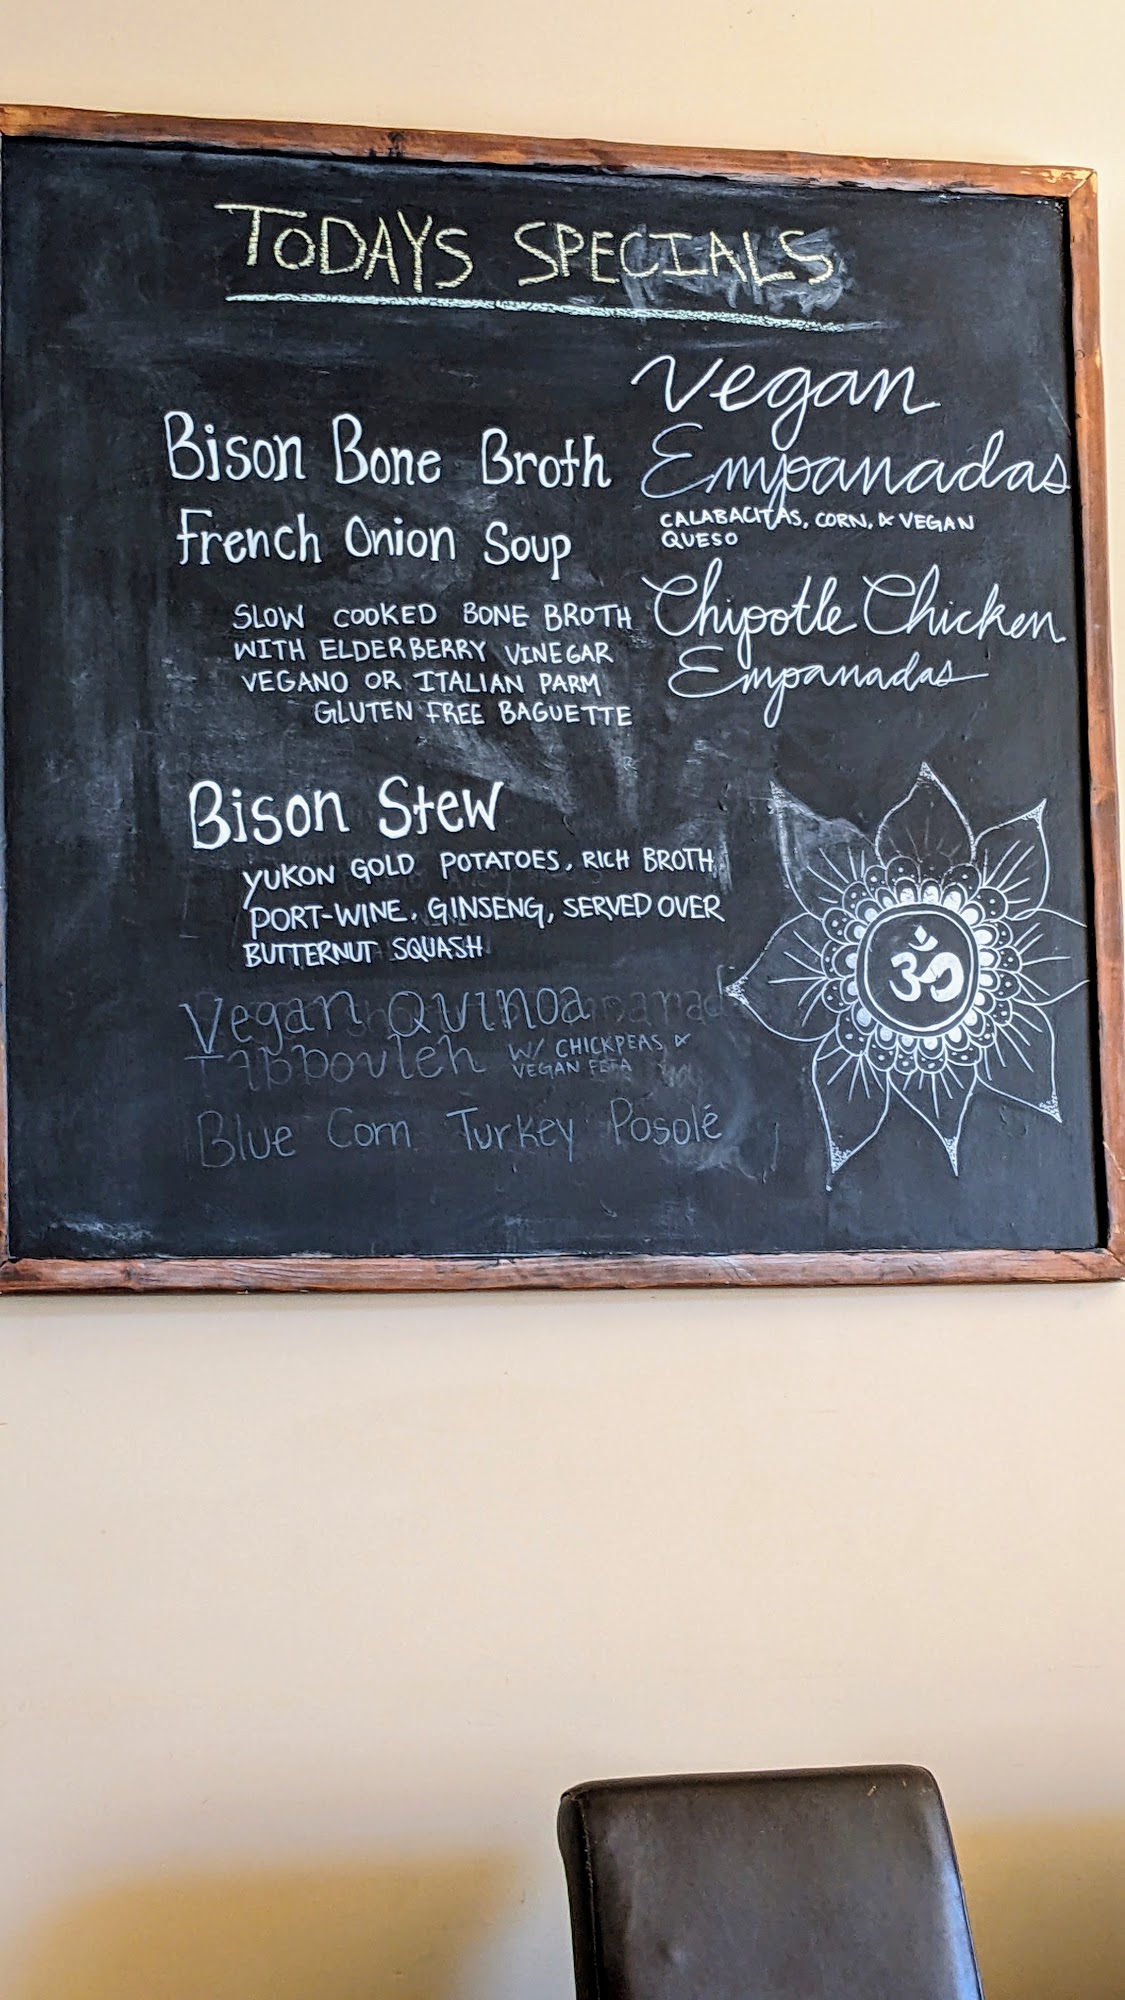 TODAYS SPECIALS
Bison Bone Broth
French Onion Soup
SLOW COOKED BONE BROTH
WITH ELDERBERRY VINEGAR
VEGANO OR ITALIAN PARM
GLUTEN FREE BAGUETTE
Bison Stew
YUKON GOLD POTATOES, RICH BROTH,
PORT-WINE, GINSENG, SERVED OVER
BUTTERNUT SQUASH
Vegan Quinoa
Tabbouleh W/ CHICKPEAS &
VEGAN FETA
Blue Corn Turkey Posolé
Vegan
Empanadas
CALABACITAS, CORN, & VEGAN
QUESO
Chipotle Chicken
Empanadas
ॐ